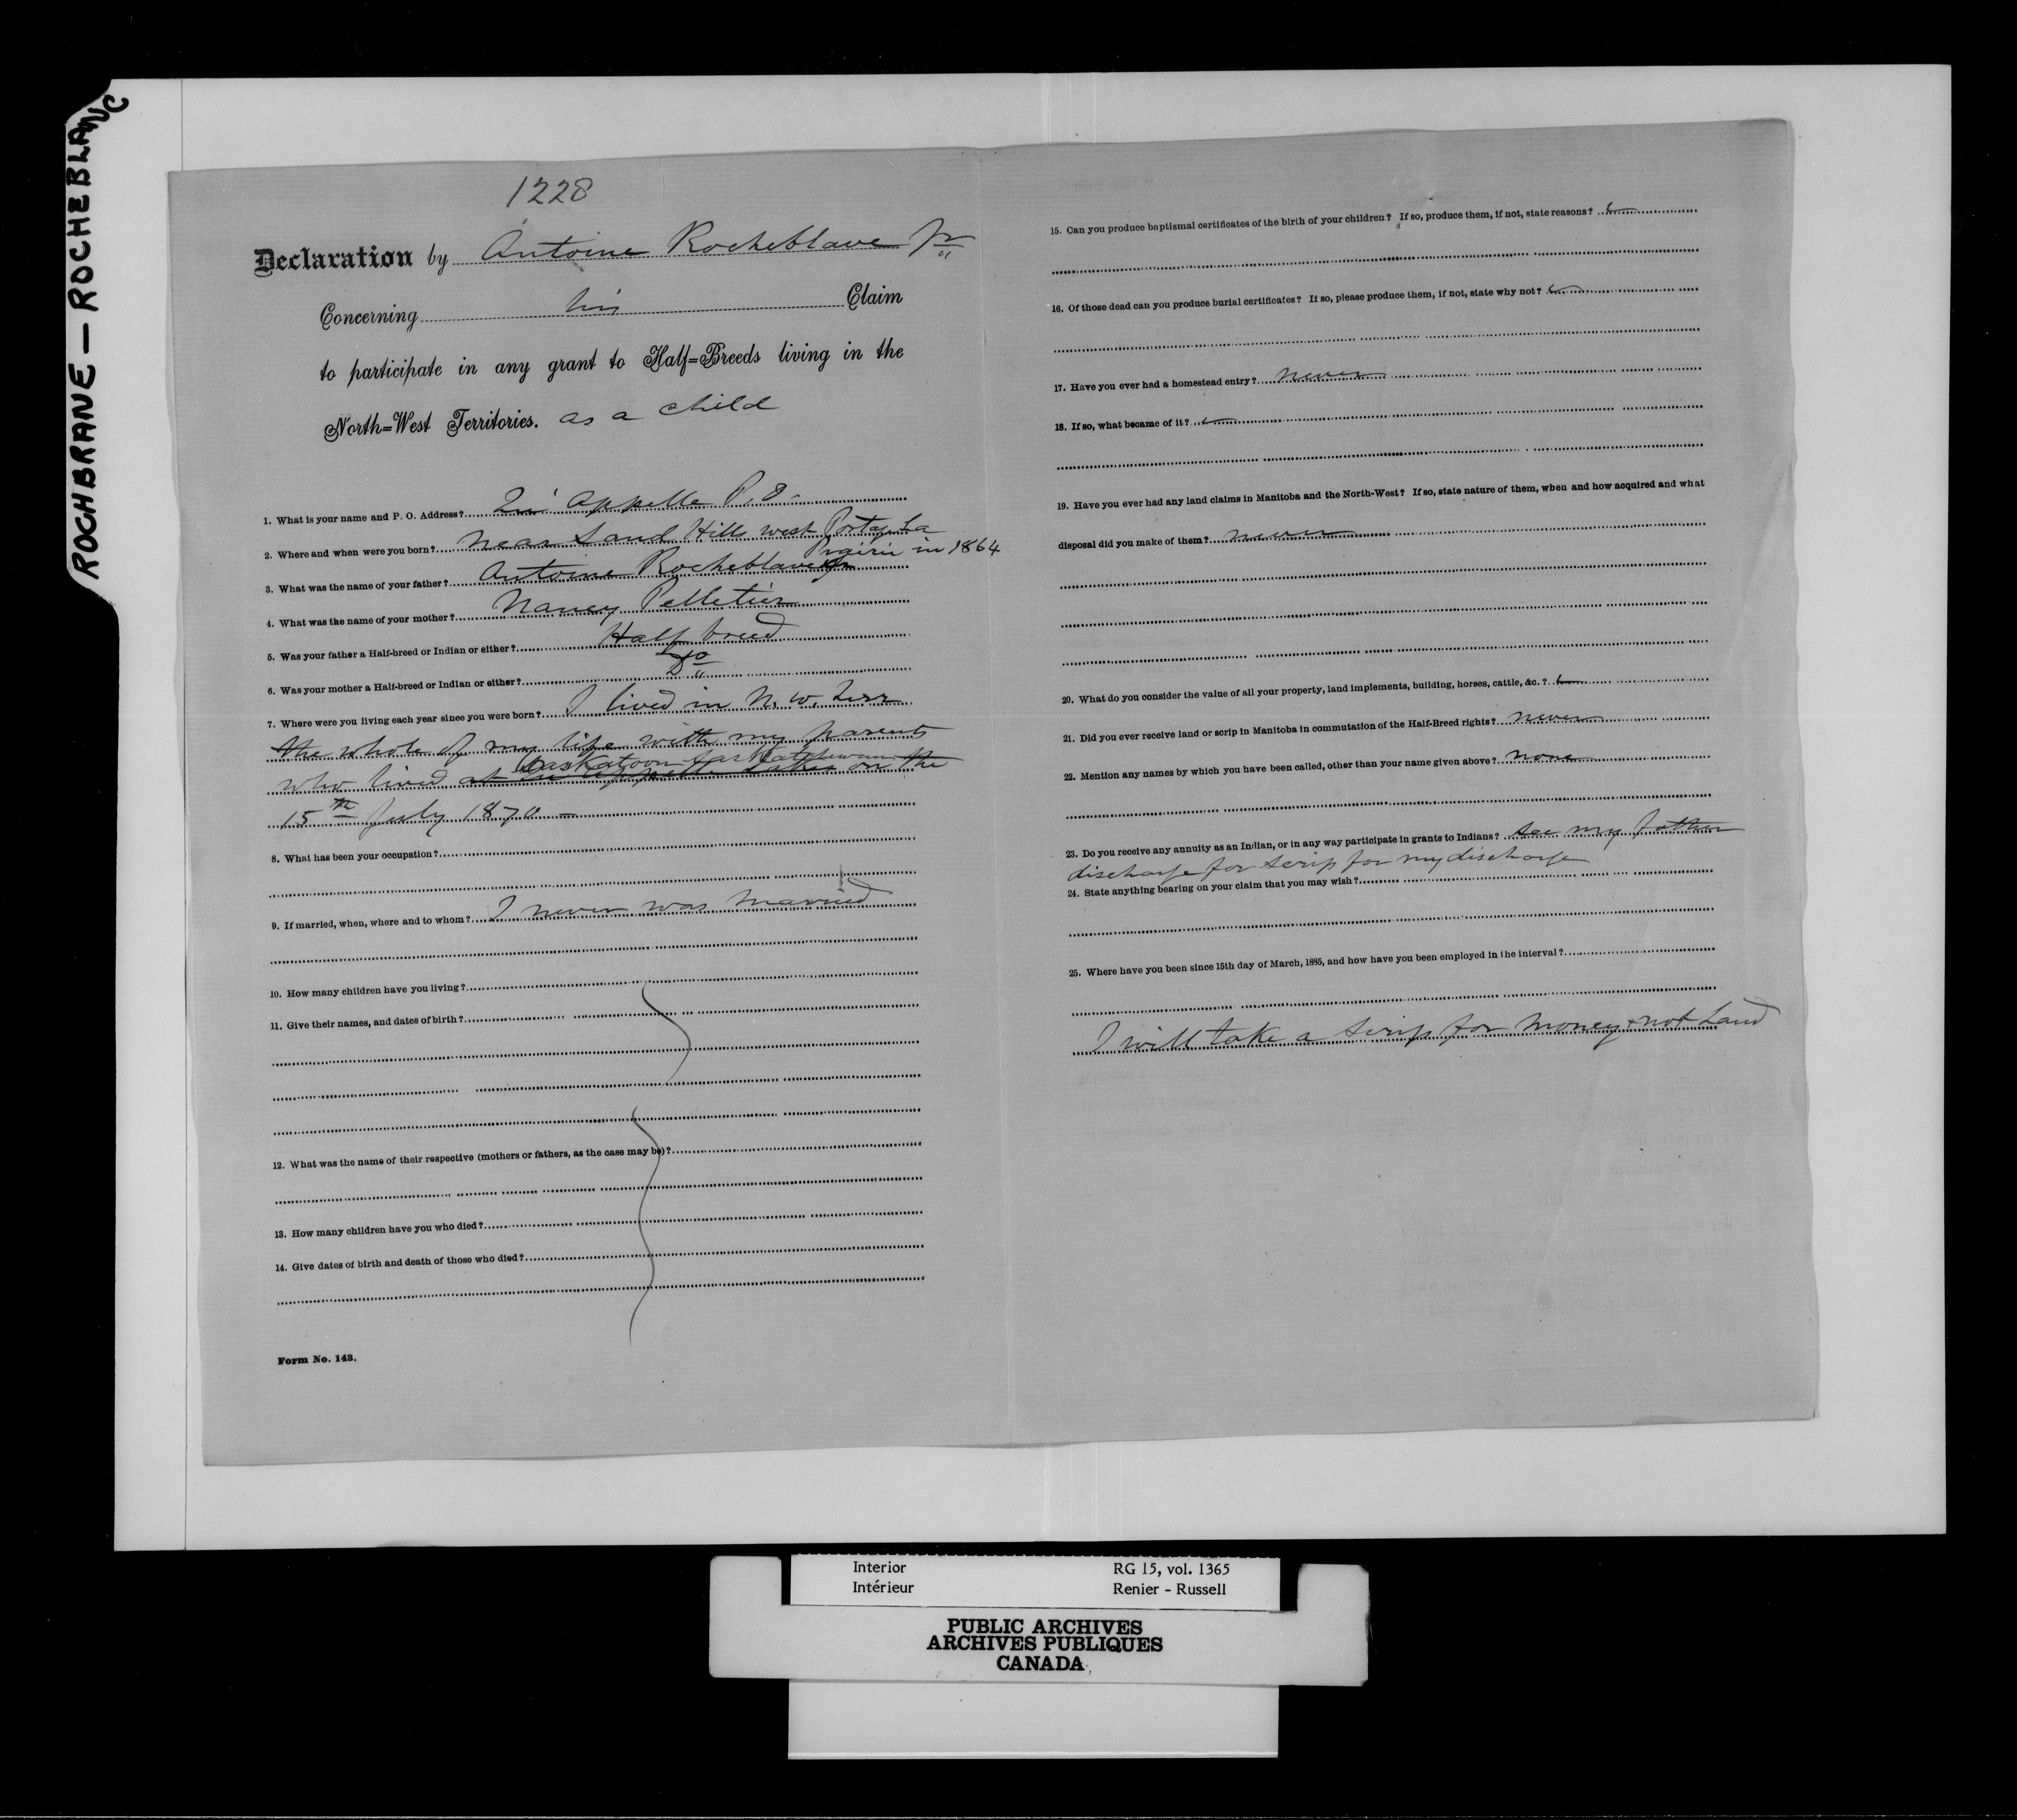 ROCHBRANE — ROCHEBLANC
1228
Declaration by Antoine Rocheblave Jr
Concerning his Claim
to participate in any grant to Half=Breeds living in the
North=West Territories. as a child
1. What is your name and P. O. Address? Qu'Appelle P.O.
2. Where and when were you born? Near Sand Hills west Portage La
Prairie in 1864
3. What was the name of your father? Antoine Rocheblave Sr
4. What was the name of your mother? Nancy Pelletier
5. Was your father a Half-breed or Indian or either? Half breed
6. Was your mother a Half-breed or Indian or either? Do
7. Where were you living each year since you were born? I lived in N. W. Terr
the whole of my life with my parents
Saskatoon Saskatchewan
who lived at Qu'Appelle Lakes on the
15th July 1870 —
8. What has been your occupation?
9. If married, when, where and to whom? I never was married
10. How many children have you living?
11. Give their names, and dates of birth?
12. What was the name of their respective (mothers or fathers, as the case may be)?
13. How many children have you who died?
14. Give dates of birth and death of those who died?
Form No. 143.
15. Can you produce baptismal certificates of the birth of your children? If so, produce them, if not, state reasons?
16. Of those dead can you produce burial certificates? If so, please produce them, if not, state why not?
17. Have you ever had a homestead entry? never
18. If so, what became of it?
19. Have you ever had any land claims in Manitoba and the North-West? If so, state nature of them, when and how acquired and what
disposal did you make of them? never
20. What do you consider the value of all your property, land implements, building, horses, cattle, &c.?
21. Did you ever receive land or scrip in Manitoba in commutation of the Half-Breed rights? never
22. Mention any names by which you have been called, other than your name given above? none
23. Do you receive any annuity as an Indian, or in any way participate in grants to Indians? See my father
discharge for scrip for my discharge
24. State anything bearing on your claim that you may wish?
25. Where have you been since 15th day of March, 1885, and how have you been employed in the interval?
I will take a scrip for money & not Land
Interior RG 15, vol. 1365
Intérieur Renier - Russell
PUBLIC ARCHIVES
ARCHIVES PUBLIQUES
CANADA